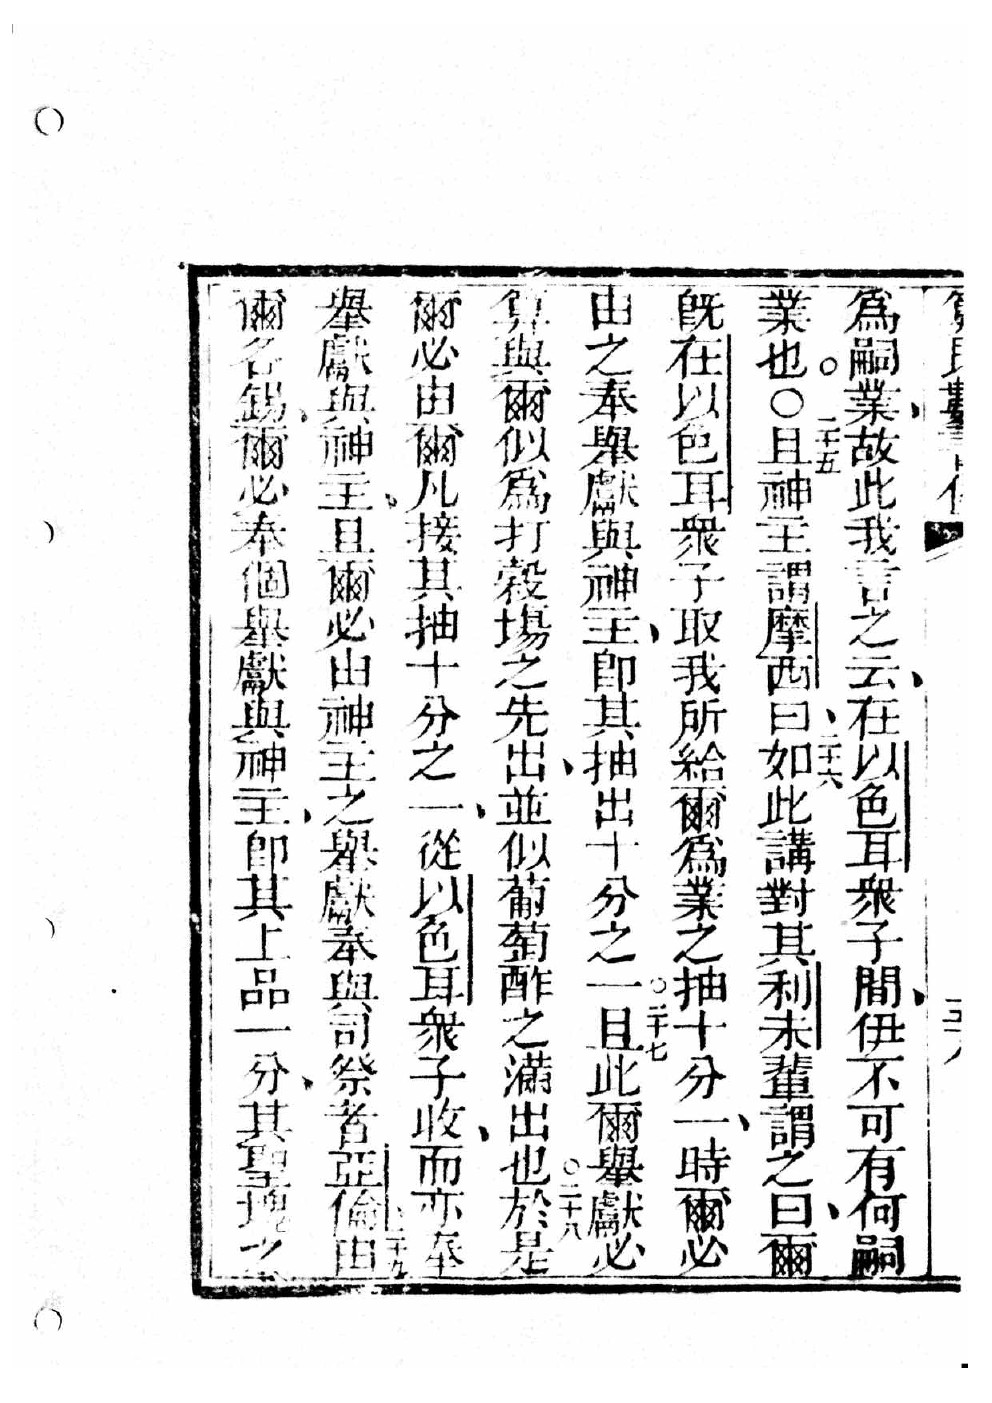 為嗣業、故此我言之云、在以色耳眾子間、伊不可有何嗣
業也。〇二十五且神主謂摩西曰、二十六如此講對其利未輩謂之曰、爾
既在以色耳眾子取我所給爾為業之抽十分一時、爾必
由之奉舉獻與神主、即其抽出十分之一。二十七且此爾舉獻必
算與爾似為打穀場之先出、並似葡萄酢之滿出也。二十八於是
爾必由爾凡接其抽十分之一、從以色耳眾子收、而亦奉
舉獻與神主。且爾必由神主之舉獻奉與司祭者亞倫、二十九由
爾各錫、爾必奉個舉獻與神主、即其上品一分、其聖塊之